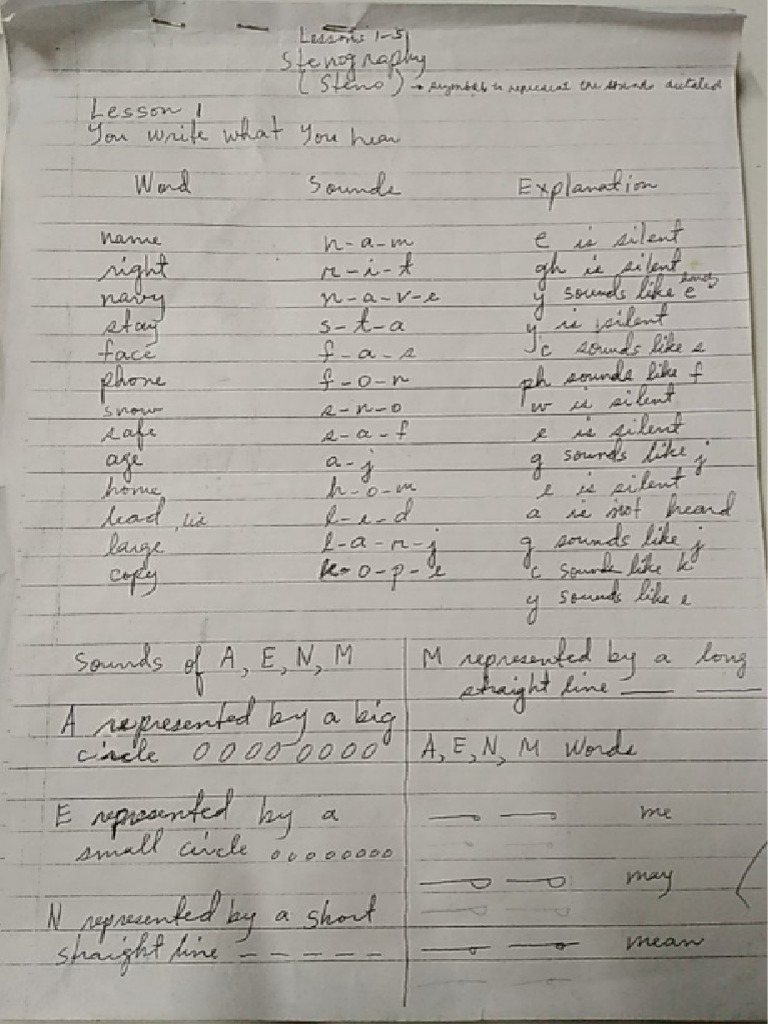 Lessons 1-5
Stenography
(Steno) → symbols to represent the sound dictated
Lesson 1
You write what you hear
Word Sounds Explanation
name n-a-m e is silent
right r-i-t gh is silent
navy n-a-v-e y sounds like e
stay s-t-a y is silent
face f-a-s c sounds like s
phone f-o-n ph sounds like f
snow s-n-o w is silent
safe s-a-f e is silent
age a-j g sounds like j
home h-o-m e is silent
lead l-e-d a is not heard
large l-a-r-j g sounds like j
copy k-o-p-e c sounds like k
y sounds like e
Sounds of A, E, N, M
A represented by a big
circle
E represented by a
small circle
N represented by a short
straight line
M represented by a long
straight line
A, E, N, M Words
me
may
mean